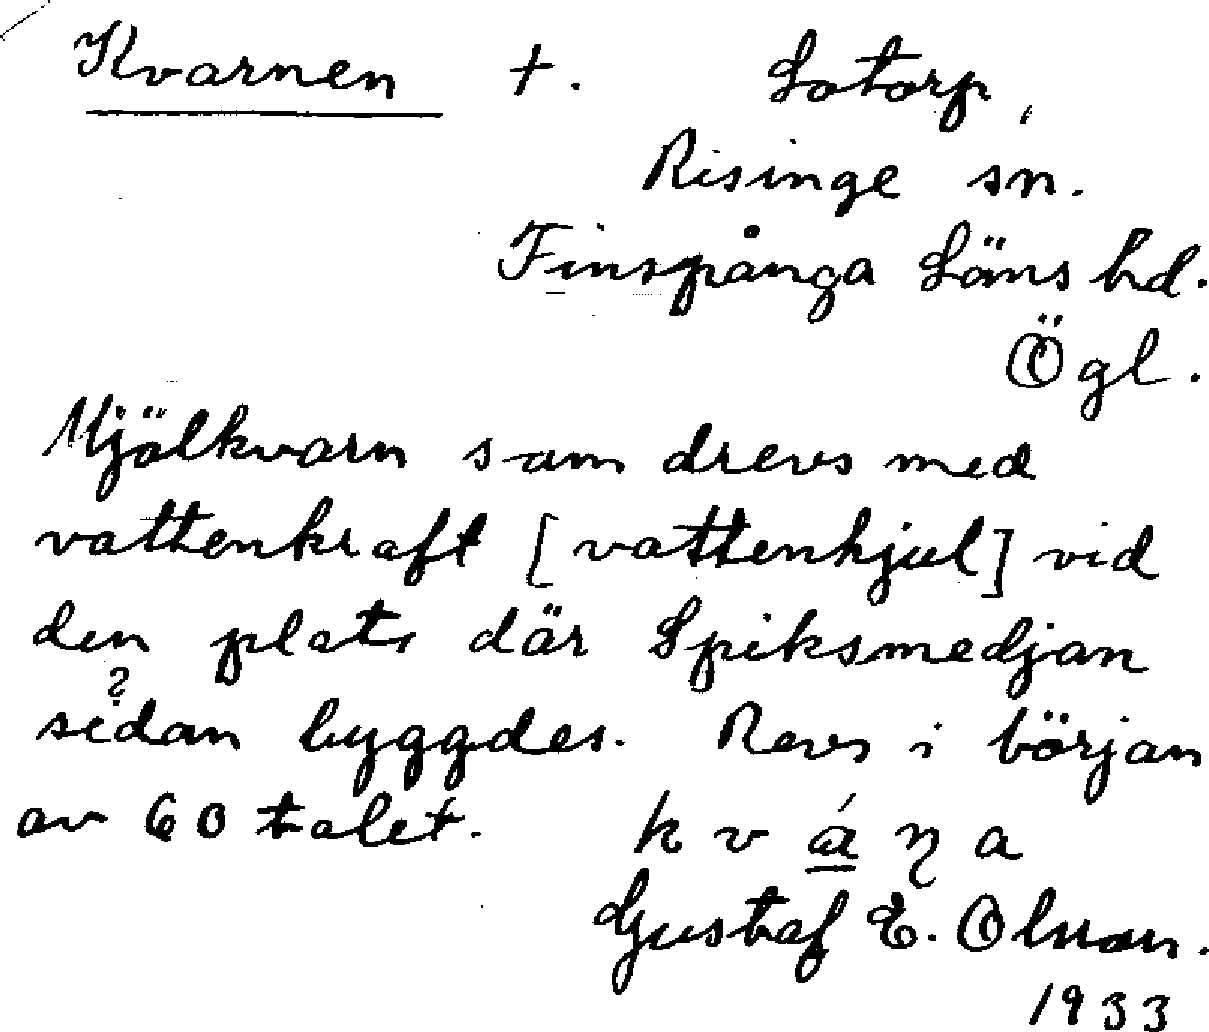 Kvarnen †. Lotorp,
Risinge sn.
Finspånga Läns hd.
Ögl.
Mjölkvarn som drevs med
vattenkraft [vattenhjul] vid
den plats där Spiksmedjan
?
sedan byggdes. Revs i början
av 60 talet. kváṇa
Gustaf E. Olsson.
1933